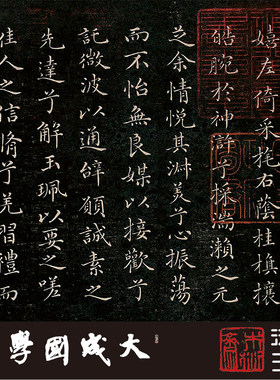 嬉左倚采旄右蔭桂旗攘
皓腕於神滸兮採湍瀨之玄
芝余情悅其淑美兮心振蕩
而不怡無良媒以接歡兮
託微波以通辭願誠素之
先達兮解玉珮以要之嗟
佳人之信脩兮羌習禮而
大成國學